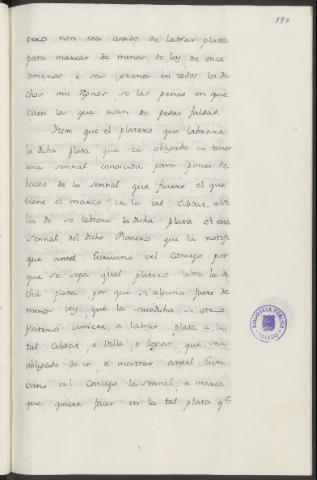 190
tero non sea osado de labrar plata
para marcar de menos de ley de once
dineros, e seis granos en todos los di-
chos mis Regnos, so las penas en que
caen los que usan de pesas falsas.
Item que el platero que labrare
la dicha plata que sea obligado de tener
una sennal conocida para poner de
baxo de la sennal que ficiere el que
tiene el marco de la tal Cibdat,
do se labrare la dicha plata, et esta
sennal del dicho Platero que la notifi
que antel Escrivano del Concejo por
que se sepa qual platero labra la di
cha plata, por que si alguna fuere de
menor ley que la susodicha, si otro
platero viniere a labrar plata a la
tal cibdat, o villa, o logar, que sea
obligado de ir, e mostrar antel Escri
vano del Concejo la sennal, e marca
que quiere facer en la tal plata q.e
BIBLIOTECA PUBLICA